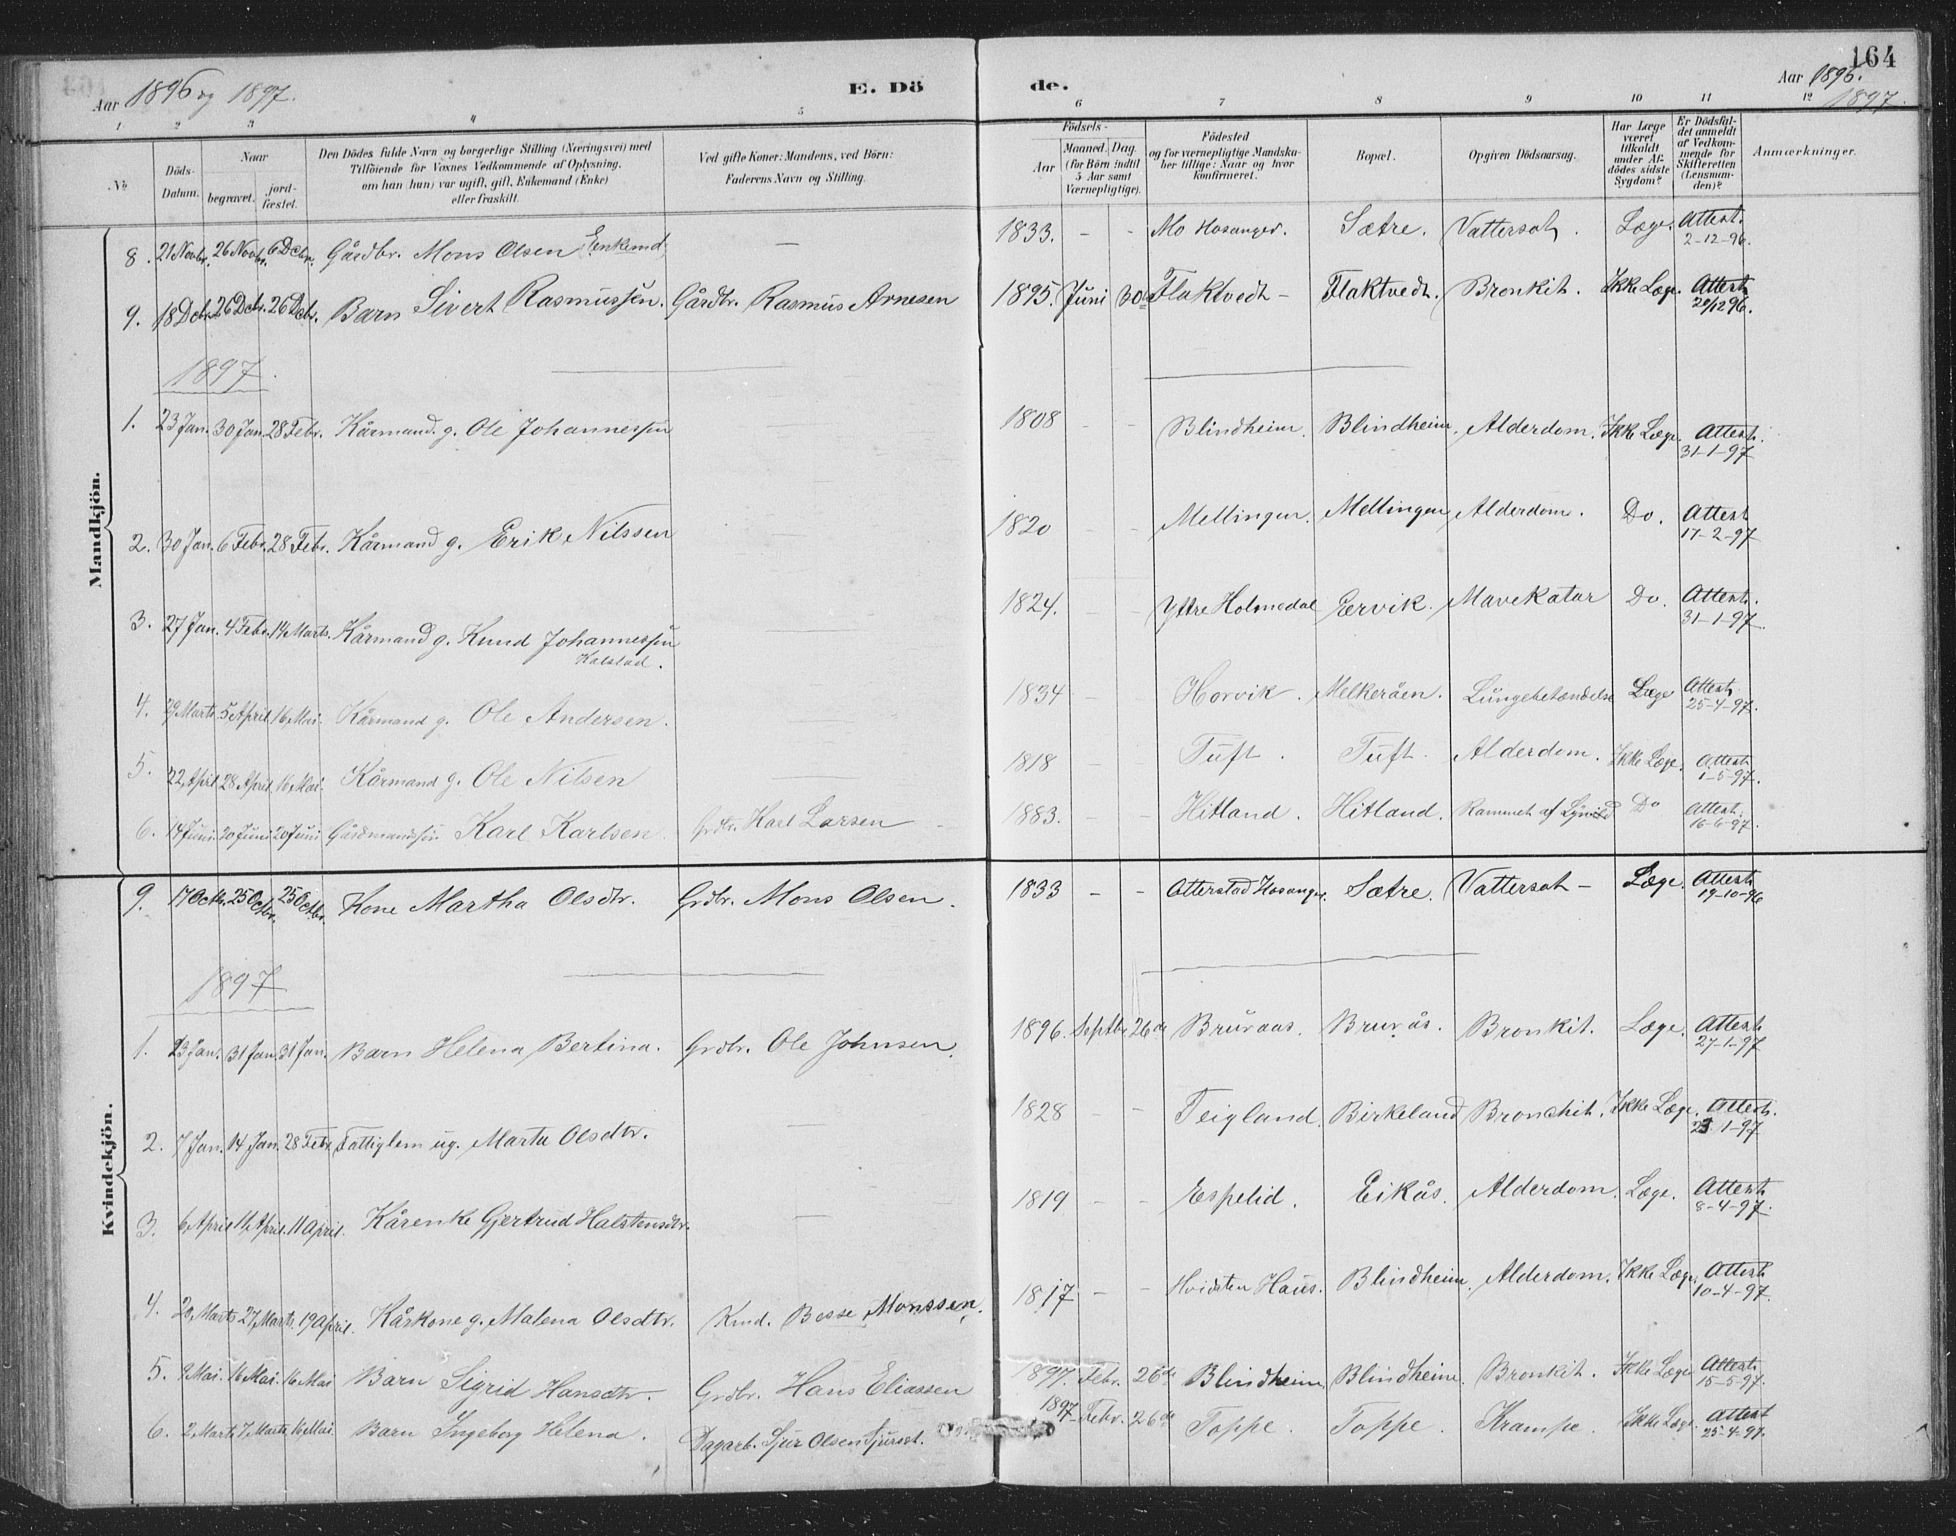 164
Aar 1896 og 1897.
E. Döde.
Aar 1896.
1897.
1 2 3 4 5 6 7 8 9 10 11 12
No
Döds-Datum.
Naar
begravet.
jord-fæstet.
Den Dödes fulde Navn og borgerlige Stilling (Næringsvei) med
Tilföiende for Voxnes Vedkommende af Oplysning,
om han (hun) var ugift, gift, Enkemand (Enke)
eller fraskilt.
Ved gifte Koner: Mandens, ved Börn:
Faderens Navn og Stilling.
Födsels-
Aar
Maaned. Dag.
(for Börn indtil
5 Aar samt
Værnepligtige).
Födested
og for værnepligtige Mandska-
ber tillige: Naar og hvor
konfirmeret.
Bopæl.
Opgiven Dödsaarsag.
Har Læge
været
tilkaldt
under Af-
dödes sidste
Sygdom?
Er Dödsfal-
det anmeldt
af Vedkom-
mende for
Skifteretten
(Lensman-
den)?
Anmærkninger.
Mandkjön.
8. 21 Novbr. 26 Novbr. 6 Dcbr. Gårdbr. Mons Olsen Enkemd — 1833. - - Mo Hosanger. Sætre. Vattersot. Læge. Attest. 2-12-96.
9. 18 Dcbr. 26 Dcbr. 26 Dcbr. Barn Sivert Rasmussen. Gårdbr. Rasmus Arnesen 1895. Juni 30te Flaktvedt - Flaktvedt. Bronkit. Ikke Læge. Attest. 20/12 96.
1897.
1. 23 Jan. 30 Jan. 28 Febr. Kårmand. g. Ole Johannessen 1808 - - Blindheim. Blindheim. Alderdom. Ikke Læge. Attest. 31-1-97
2. 30 Jan. 6 Febr. 28 Febr. Kårmand g. Erik Nilssen 1820 - - Mellingen. Mellingen Alderdom. Do. Attest 17-2-97
3. 27 Jan. 4 Febr. 14 Marts. Kårmand g. Knud Johannessen Kalstad. 1824. - - Yttre Holmedal Eervik. Mavekatar Do. Attest. 31-1-97.
4. 29 Marts. 5 April. 16 Mai. Kårmand g. Ole Andersen. 1834 - - Horvik. Melkeråen. Lungebetændelse Læge Attest. 25-4-97.
5. 22 April 28 April. 16 Mai. Kårmand g. Ole Nilsen 1818 - - Tuft. Tuft. Alderdom. Ikke Læge. Attest. 1-5-97.
6. 14 Juni. 20 Juni 20 Juni Gårdmandssøn Karl Karlsen. Grdbr. Karl Larsen 1883. - - Hitland. Hitland. Rammet af Lynild Do Attest. 16-6-97.
Kvindekjön.
9. 17 Octbr. 25 Octbr. 25 Octbr. Kone Martha Olsdtr. Grdbr. Mons Olsen. 1833 - - Otterstad Hosanger. Sætre. Vattersot - Læge. Attest. 19-10-96
1897
1. 23 Jan. 31 Jan. 31 Jan. Barn Helena Bertina. Grdbr. Ole Johnsen. 1896. Septbr. 26de Bruraas. Brurås. Bronkit. Læge. Attest. 27-1-97
2. 7 Jan. 14 Jan. 28 Febr. Fattiglem ug. Marta Olsdtr. — 1828 - - Teigland. Birkeland Bronchit. Ikke Læge. Attest. 23-1-97
3. 6 April 11 April. 11 April. Kårenke Gjertrud Halstensdtr. — 1819 - - Espelid. Eikås. Alderdom. Læge. Attest. 8-4-97.
4. 20 Marts 27 Marts. 19 April. Kårkone g. Malena Olsdtr. Kmd. Besse Monssen. 1817 - - Hvidsten Haus. Blindheim. Alderdom. Ikke Læge. Attest 10-4-97.
5. 9 Mai. 16 Mai. 16 Mai Barn Sigrid Hansdtr. Grdbr. Hans Eliassen 1897. Febr. 26de Blindheim. Blindheim. Bronkit. Ikke Læge Attest. 15-5-97.
6. 2 Marts 7 Marts 16 Mai. Barn Ingeborg Helena. Dagarb. Sjur Olsen Sjurset. 1897 Febr. 26de Toppe. Toppe. Krampe. Ikke Læge. Attest 25-4-97.